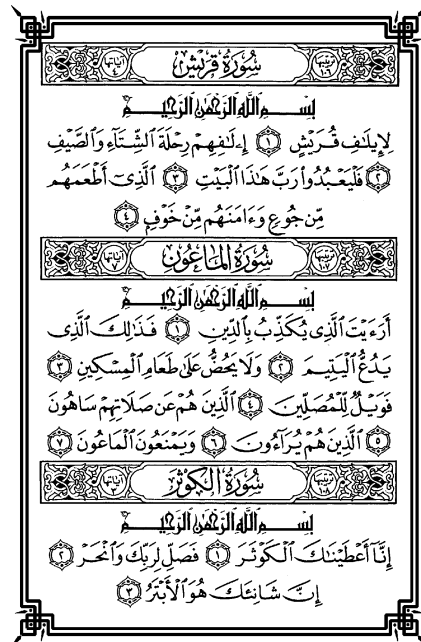 ترتيبها ١٠٦ سُورَةُ قُرَيْشٍ آياتها ٤
بِسْمِ ٱللَّهِ ٱلرَّحْمَٰنِ ٱلرَّحِيمِ
لِإِيلَٰفِ قُرَيْشٍ ١ إِۦلَٰفِهِمْ رِحْلَةَ ٱلشِّتَآءِ وَٱلصَّيْفِ
٢ فَلْيَعْبُدُوا۟ رَبَّ هَٰذَا ٱلْبَيْتِ ٣ ٱلَّذِىٓ أَطْعَمَهُم
مِّن جُوعٍ وَءَامَنَهُم مِّنْ خَوْفٍۭ ٤
ترتيبها ١٠٧ سُورَةُ المَاعُون آياتها ٧
بِسْمِ ٱللَّهِ ٱلرَّحْمَٰنِ ٱلرَّحِيمِ
أَرَءَيْتَ ٱلَّذِى يُكَذِّبُ بِٱلدِّينِ ١ فَذَٰلِكَ ٱلَّذِى
يَدُعُّ ٱلْيَتِيمَ ٢ وَلَا يَحُضُّ عَلَىٰ طَعَامِ ٱلْمِسْكِينِ ٣
فَوَيْلٌ لِّلْمُصَلِّينَ ٤ ٱلَّذِينَ هُمْ عَن صَلَاتِهِمْ سَاهُونَ
٥ ٱلَّذِينَ هُمْ يُرَآءُونَ ٦ وَيَمْنَعُونَ ٱلْمَاعُونَ ٧
ترتيبها ١٠٨ سُورَةُ الكَوْثَر آياتها ٣
بِسْمِ ٱللَّهِ ٱلرَّحْمَٰنِ ٱلرَّحِيمِ
إِنَّآ أَعْطَيْنَٰكَ ٱلْكَوْثَرَ ١ فَصَلِّ لِرَبِّكَ وَٱنْحَرْ ٢
إِنَّ شَانِئَكَ هُوَ ٱلْأَبْتَرُ ٣